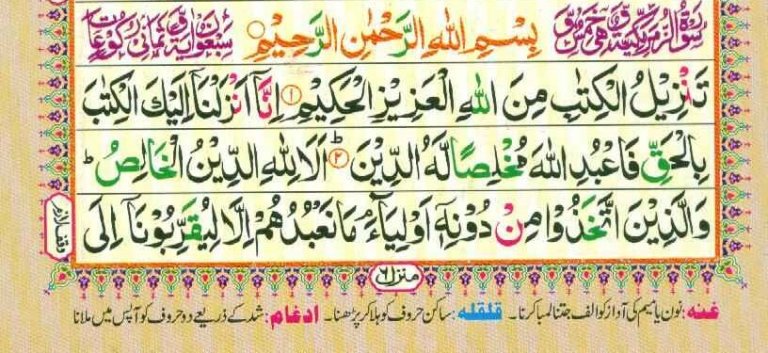 سُوْرَةُ الزُّمَرِ مَكِّيَّةٌ وَّهِيَ خَمْسٌ بِسْمِ اللّٰهِ الرَّحْمٰنِ الرَّحِيْمِ وَّسَبْعُوْنَ اٰيَةً وَّثَمَانِيْ رُكُوْعَاتٍ
تَنْزِيْلُ الْكِتٰبِ مِنَ اللّٰهِ الْعَزِيْزِ الْحَكِيْمِ ۝۱ اِنَّاۤ اَنْزَلْنَاۤ اِلَيْكَ الْكِتٰبَ
بِالْحَقِّ فَاعْبُدِ اللّٰهَ مُخْلِصًا لَّهُ الدِّيْنَ ؕ۝۲ اَلَا لِلّٰهِ الدِّيْنُ الْخَالِصُ ؕ
وَالَّذِيْنَ اتَّخَذُوْا مِنْ دُوْنِهٖۤ اَوْلِيَآءَ ۘ مَا نَعْبُدُهُمْ اِلَّا لِيُقَرِّبُوْنَاۤ اِلَى
وقف لازم
منزل ٦
غنہ: نون یا میم کی آواز کو الف جتنا لمبا کرنا۔ قلقلہ: ساکن حروف کو ہلا کر پڑھنا۔ ادغام: شد کے ذریعے دو حروف کو آپس میں ملانا